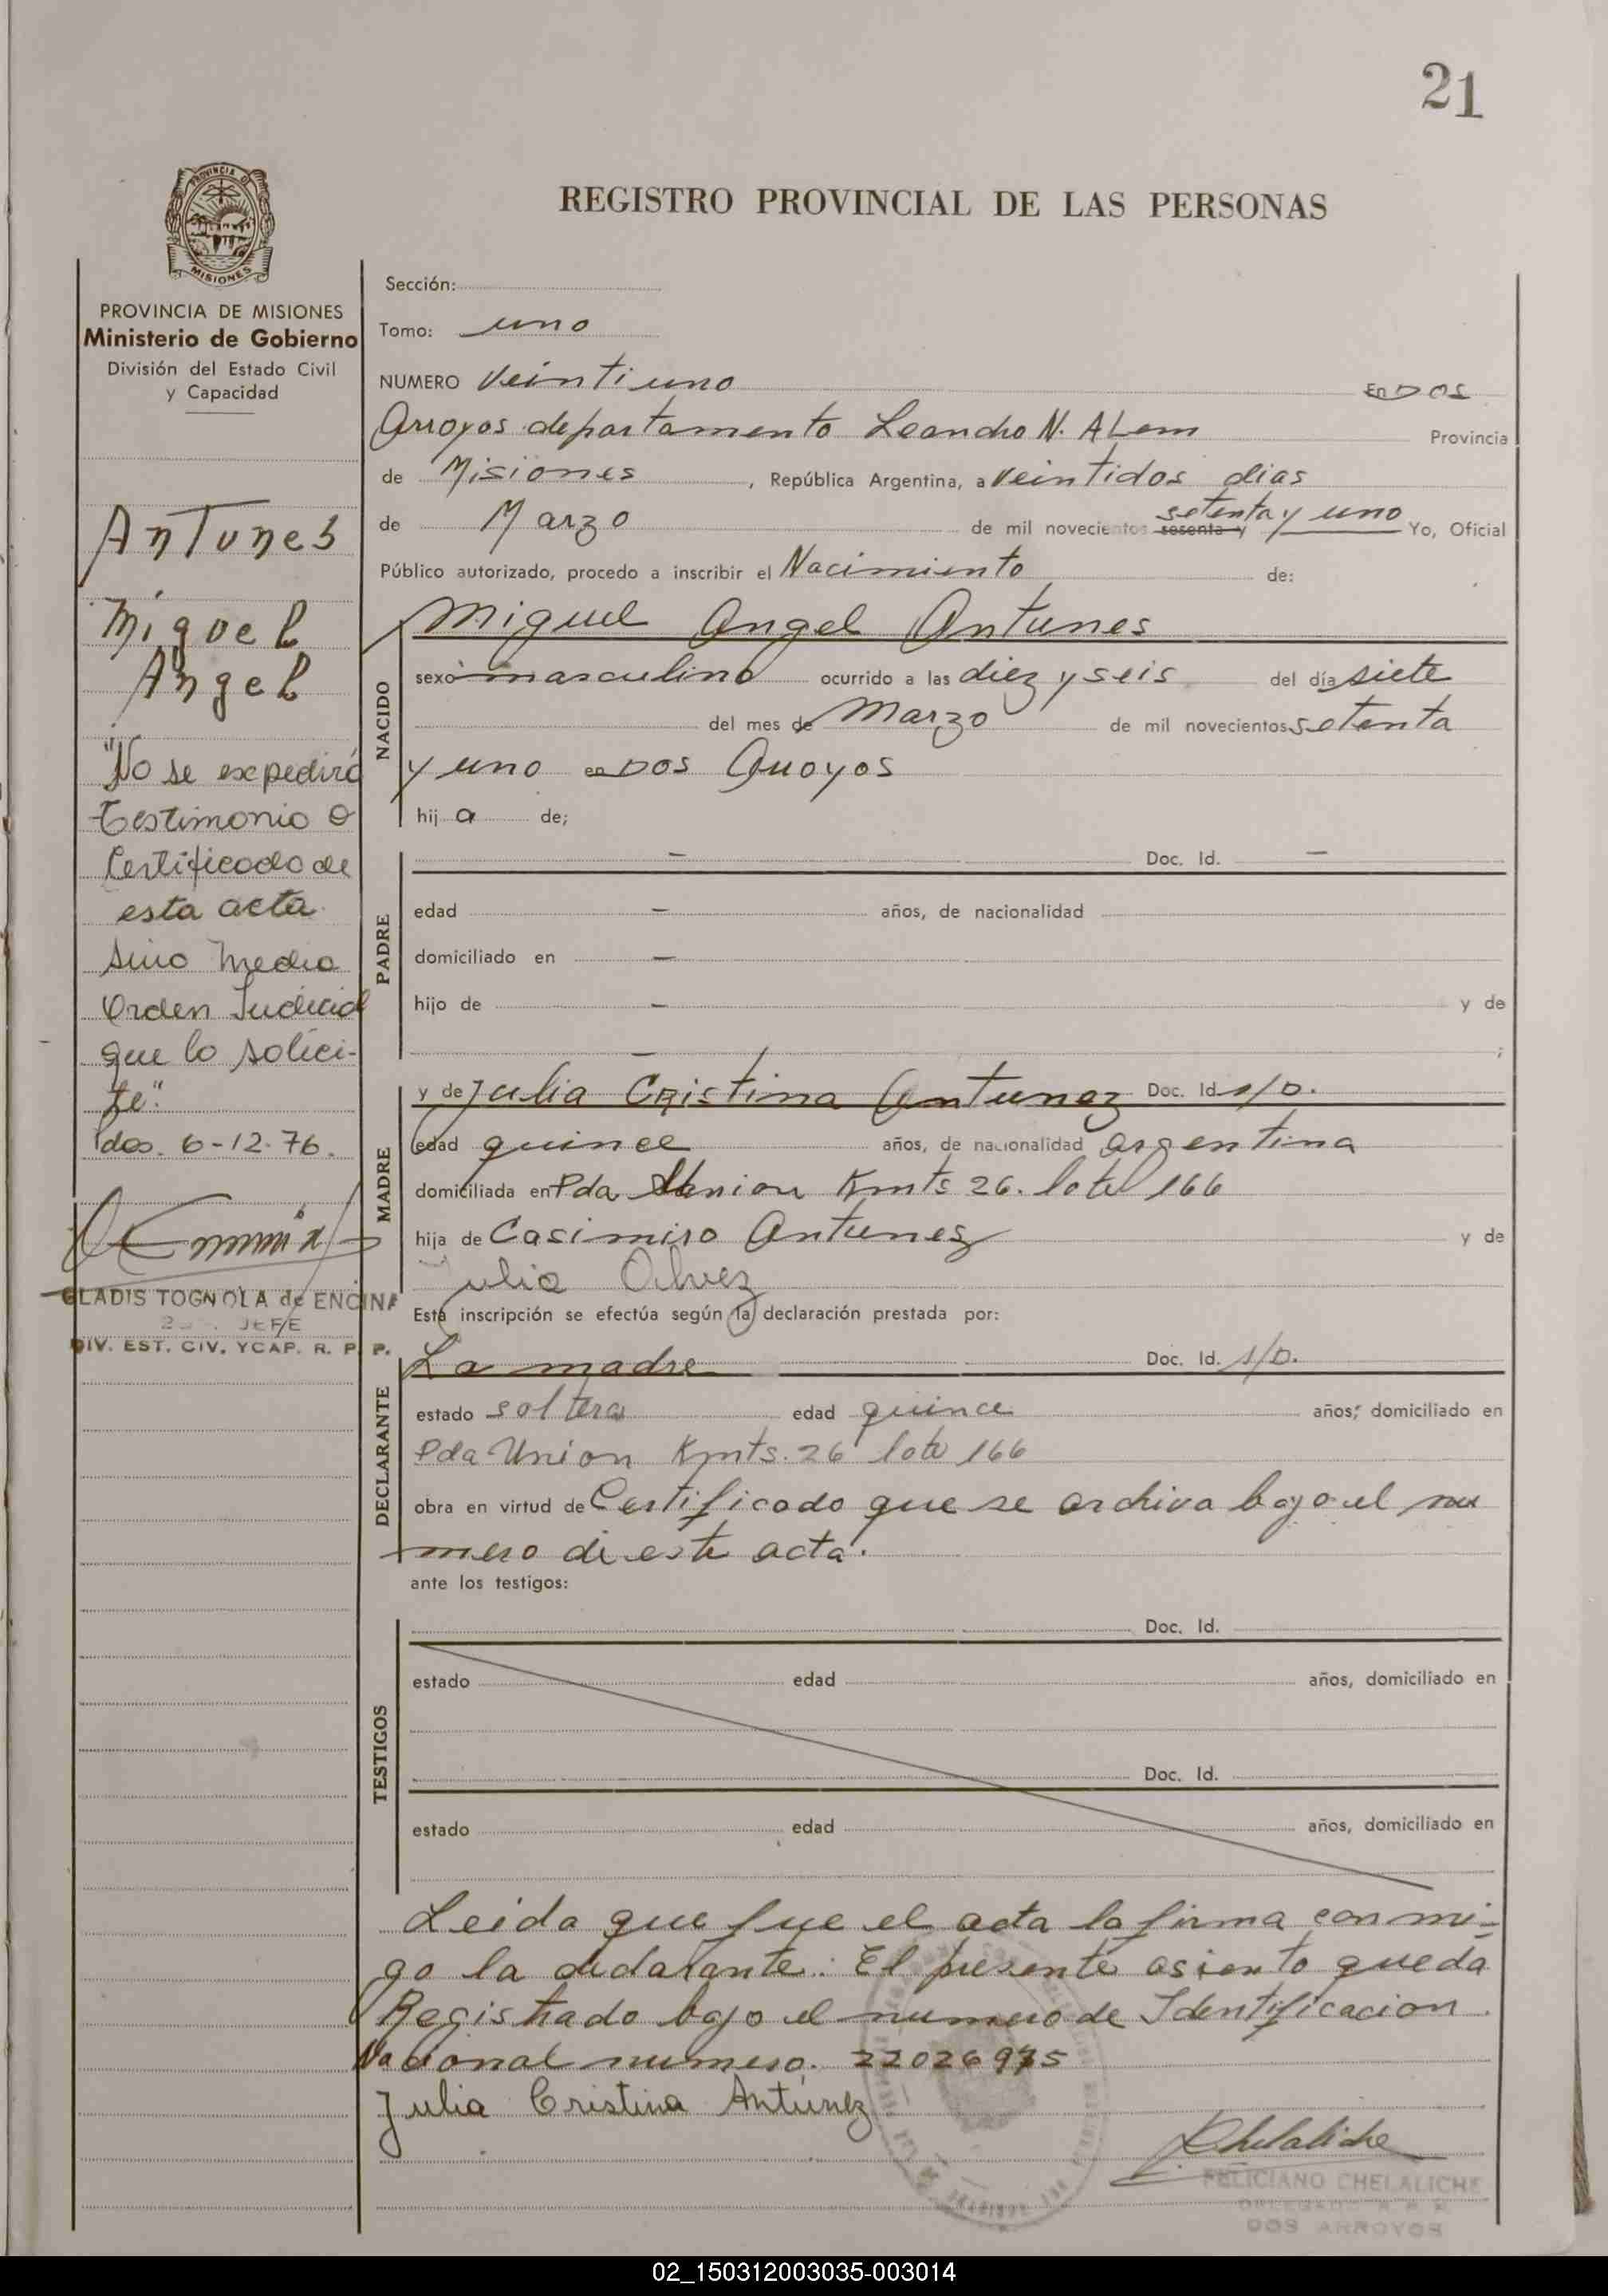 21
PROVINCIA DE
MISIONES
REGISTRO PROVINCIAL DE LAS PERSONAS
PROVINCIA DE MISIONES
Ministerio de Gobierno
División del Estado Civil
y Capacidad
Antunes
Miguel
Angel
"No se expedirá
testimonio o
Certificado de
esta acta
sino media
Orden Judicial
que lo solici-
te".
Pdos. 6-12-76.
GLADIS TOGNOLA de ENCINA
JEFE
DIV. EST. CIV. Y CAP. R. P. P.
Sección:
Tomo: uno
NUMERO Veintiuno En Dos
Arroyos departamento Leandro N. ALem Provincia
de Misiones, República Argentina, a veintidos dias
de Marzo de mil novecientos sesenta y setenta y uno Yo, Oficial
Público autorizado, procedo a inscribir el Nacimiento de:
NACIDO
Miguel Angel Antunes
sexo masculino ocurrido a las diez y seis del día siete
del mes de Marzo de mil novecientos setenta
y uno en Dos Arroyos
hij a de;
PADRE
- Doc. Id. -
edad - años, de nacionalidad
domiciliado en -
hijo de - y de
- ;
MADRE
y de Julia Cristina Antunez Doc. Id. s/D.
edad quince años, de nacionalidad argentina
domiciliada en Pda Union Kmts 26. lote 166
hija de Casimiro Antunez y de
Julia Alvez
Esta inscripción se efectúa según la declaración prestada por:
DECLARANTE
La madre Doc. Id. s/D.
estado soltera edad quince años; domiciliado en
Pda Union Kmts. 26 lote 166
obra en virtud de Certificado que se archiva bajo el nu
mero de este acta.
ante los testigos:
TESTIGOS
Doc. Id.
estado edad años, domiciliado en
Doc. Id.
estado edad años, domiciliado en
Leida que fue el acta la firma conmi-
go la declarante: El presente asiento queda
Registrado bajo el numero de Identificacion
Nacional numero. 22026975
Julia Cristina Antúnez
Chelaliche
FELICIANO CHELALICHE
DELEGADO R. P. P.
DOS ARROYOS
02_150312003035-003014